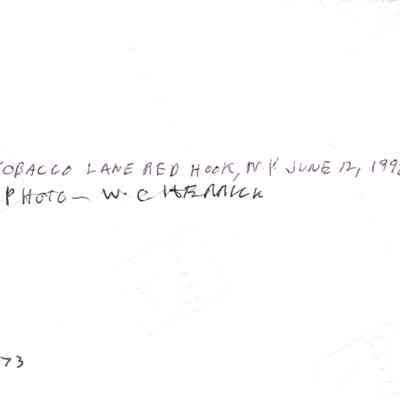 TOBACCO LANE RED HOOK, NY JUNE 12, 199
PHOTO - W. C HERRICK
73